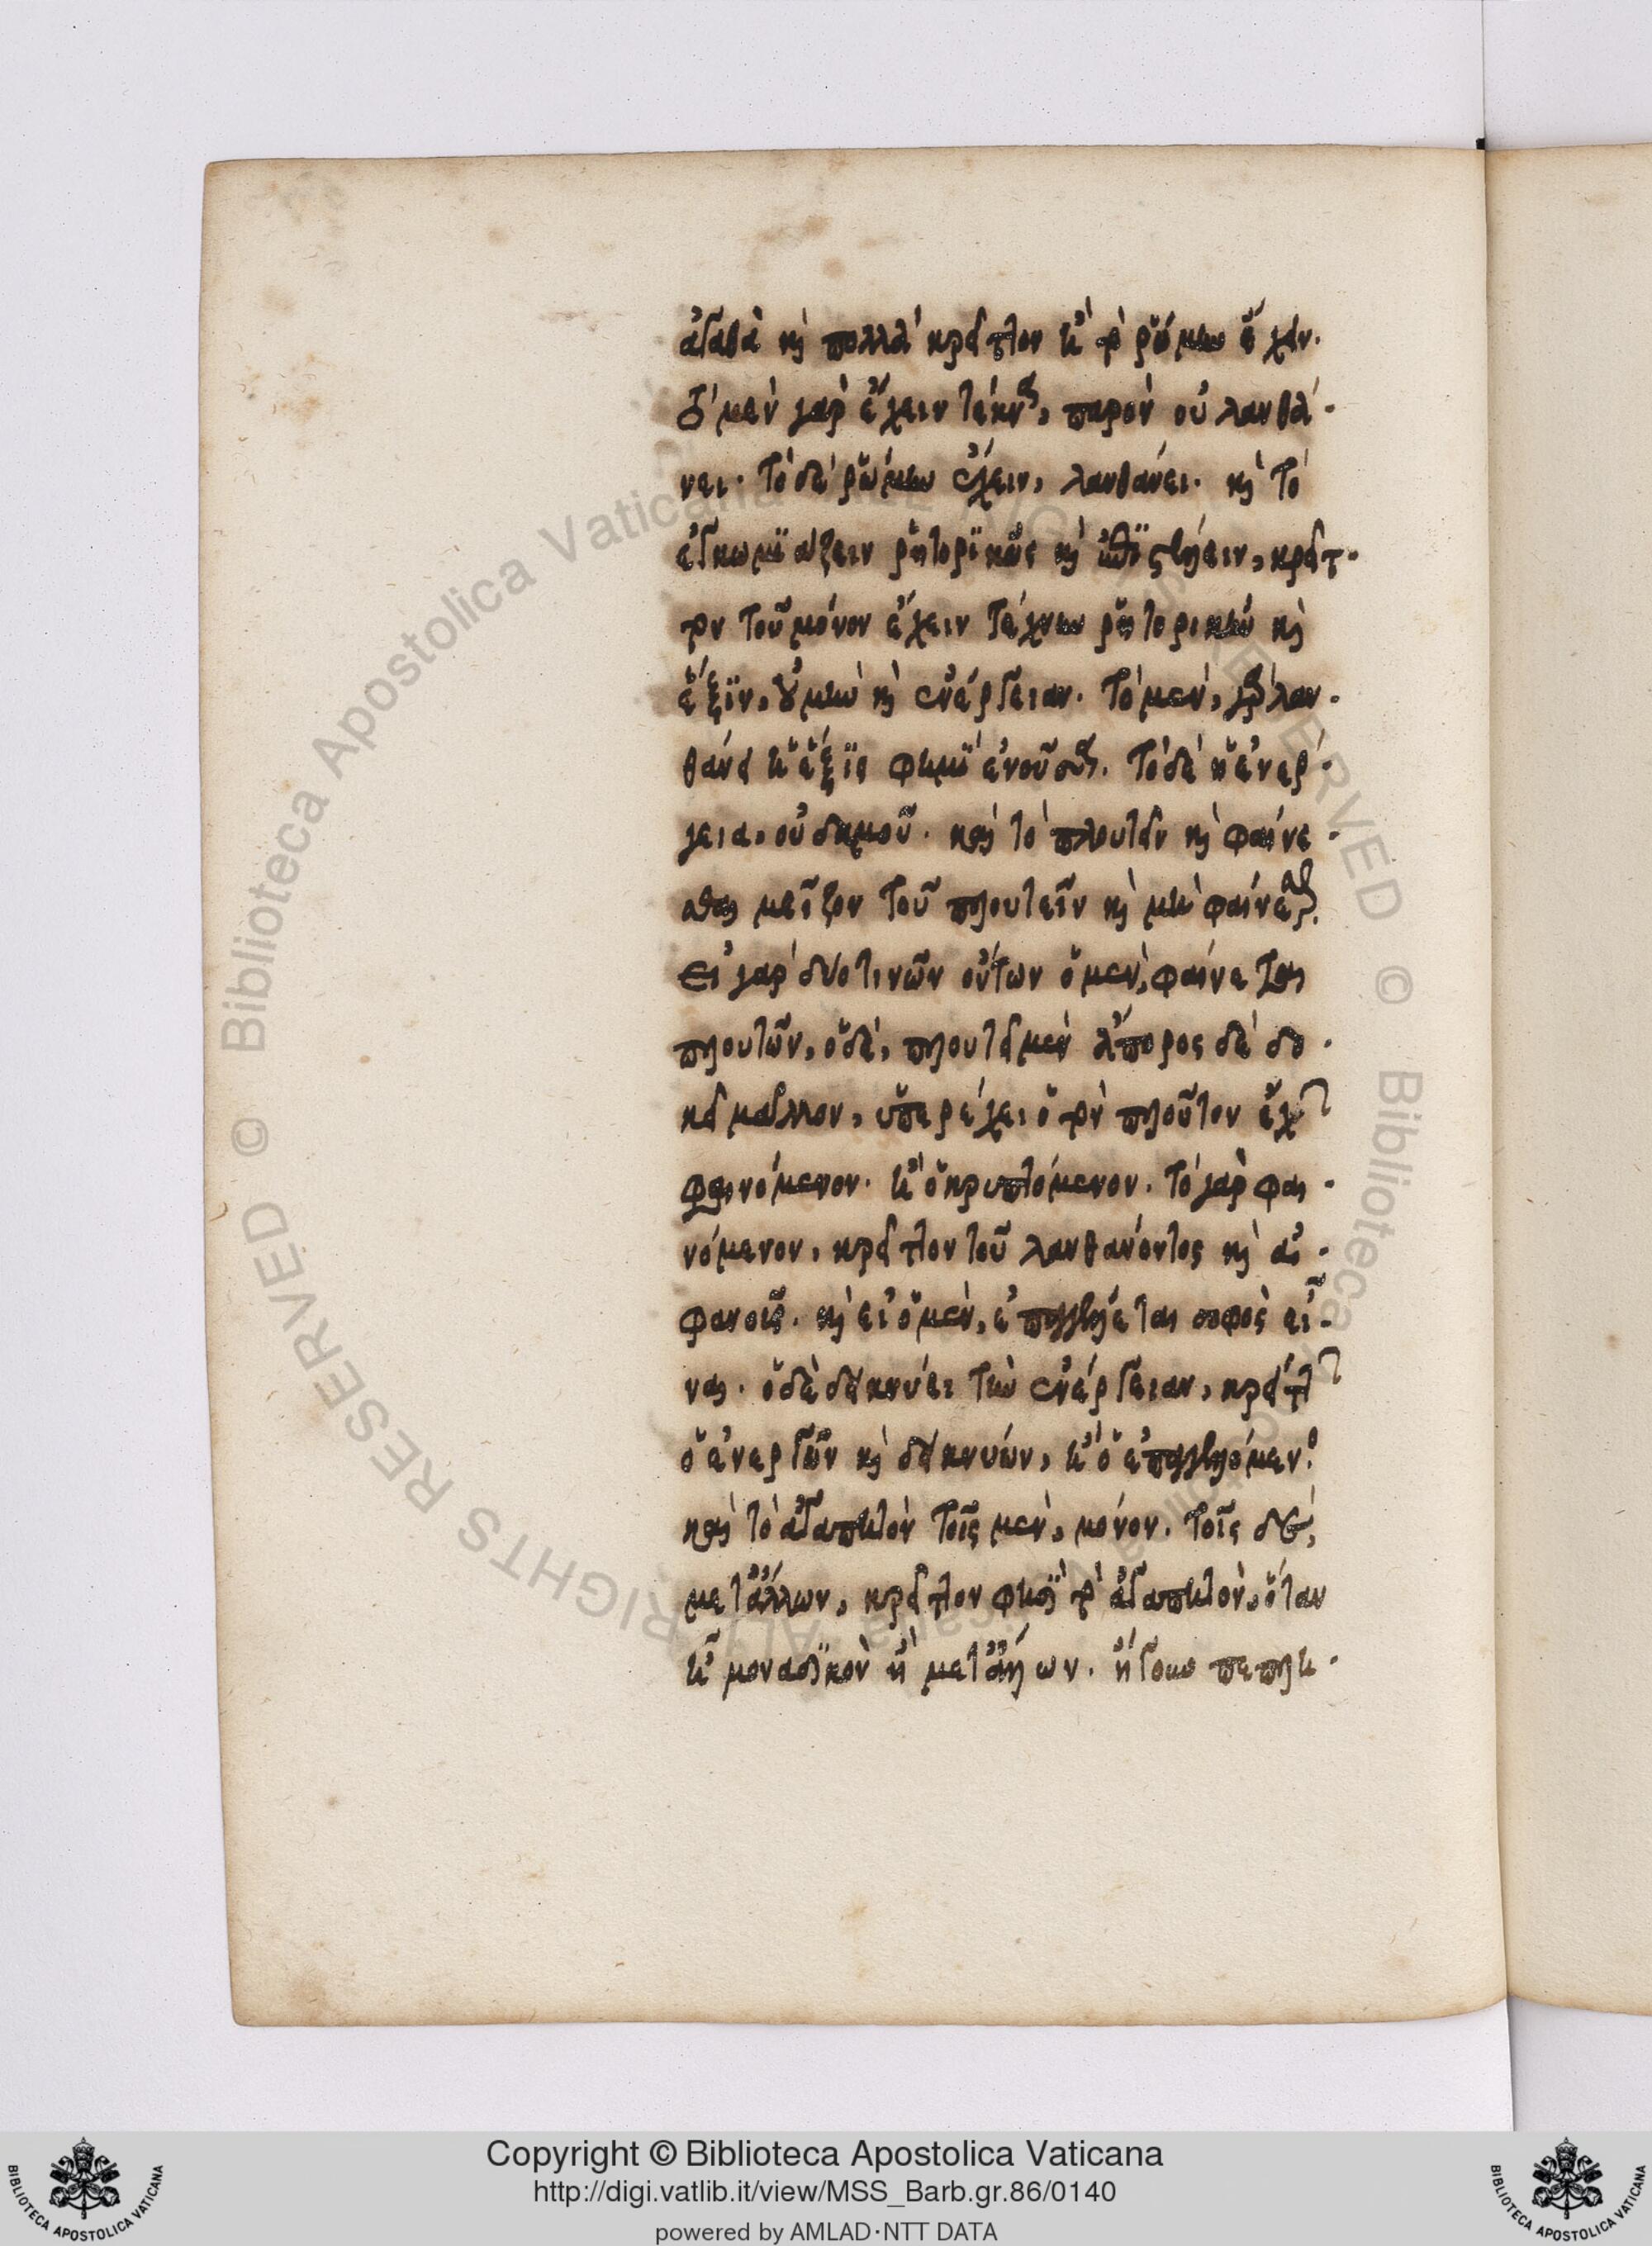 ἀγαθὰ καὶ πολλὰ κρεῖττον ἢ τὸ ῥώμην ἔχειν.
τὸ μὲν γὰρ ἔχειν τέκνα, παρὸν οὐ λανθά-
νει. τὸ δὲ ῥώμην ἔχειν, λανθάνει. καὶ τὸ
ἐγκωμϊάζειν ῥητορϊκῶς καὶ ἐπϊστέλλειν, κρεῖτ-
τον τοῦ μόνον ἔχειν τέχνην ῥητορικὴν καὶ
ἕξϊν, οὐ μὴν καὶ ἐνέργειαν. τὸ μὲν, γὰρ λαν-
θάνει ἡ ἕξϊς φημὶ ἐνοῦσα. τὸ δὲ ἡ ἐνέρ-
γεια, οὐδαμοῦ. καὶ τὸ πλουτεῖν καὶ φαίνε-
σθαι μεῖζον τοῦ πλουτεῖν καὶ μὴ φαίνεσθαι.
Εἰ γὰρ δύο τινῶν ὄντων ὁ μὲν, φαίνεται
πλουτῶν, ὁ δὲ, πλουτεῖ μὲν ἄπορος δὲ δο-
κεῖ μᾶλλον, ὑπερέχει ὁ τὸν πλοῦτον ἔχων
φαινόμενον. ἢ ὁ κρυπτόμενον. τὸ γὰρ φαι-
νόμενον, κρεῖττον τοῦ λανθάνοντος καὶ ἀ-
φανοῦς. καὶ εἰ ὁ μὲν, ἐπαγγέλλεται σοφὸς εἶ-
ναι. ὁ δὲ δεικνύει τὴν ἐνέργειαν, κρείττων
ὁ ἐνεργῶν καὶ δεικνύων, ἢ ὁ ἐπαγγελλόμενος
καὶ τὸ ἀγαπητὸν τοῖς μὲν, μόνον. τοῖς δὲ,
μετ' ἄλλων, κρεῖττον φησὶ τὸ ἀγαπητὸν, ὅταν
ᾖ μοναδϊκὸν ἢ μετ' ἄλλων. ἤγουν πεπλη-
Copyright © Biblioteca Apostolica Vaticana
http://digi.vatlib.it/view/MSS_Barb.gr.86/0140
powered by AMLAD·NTT DATA